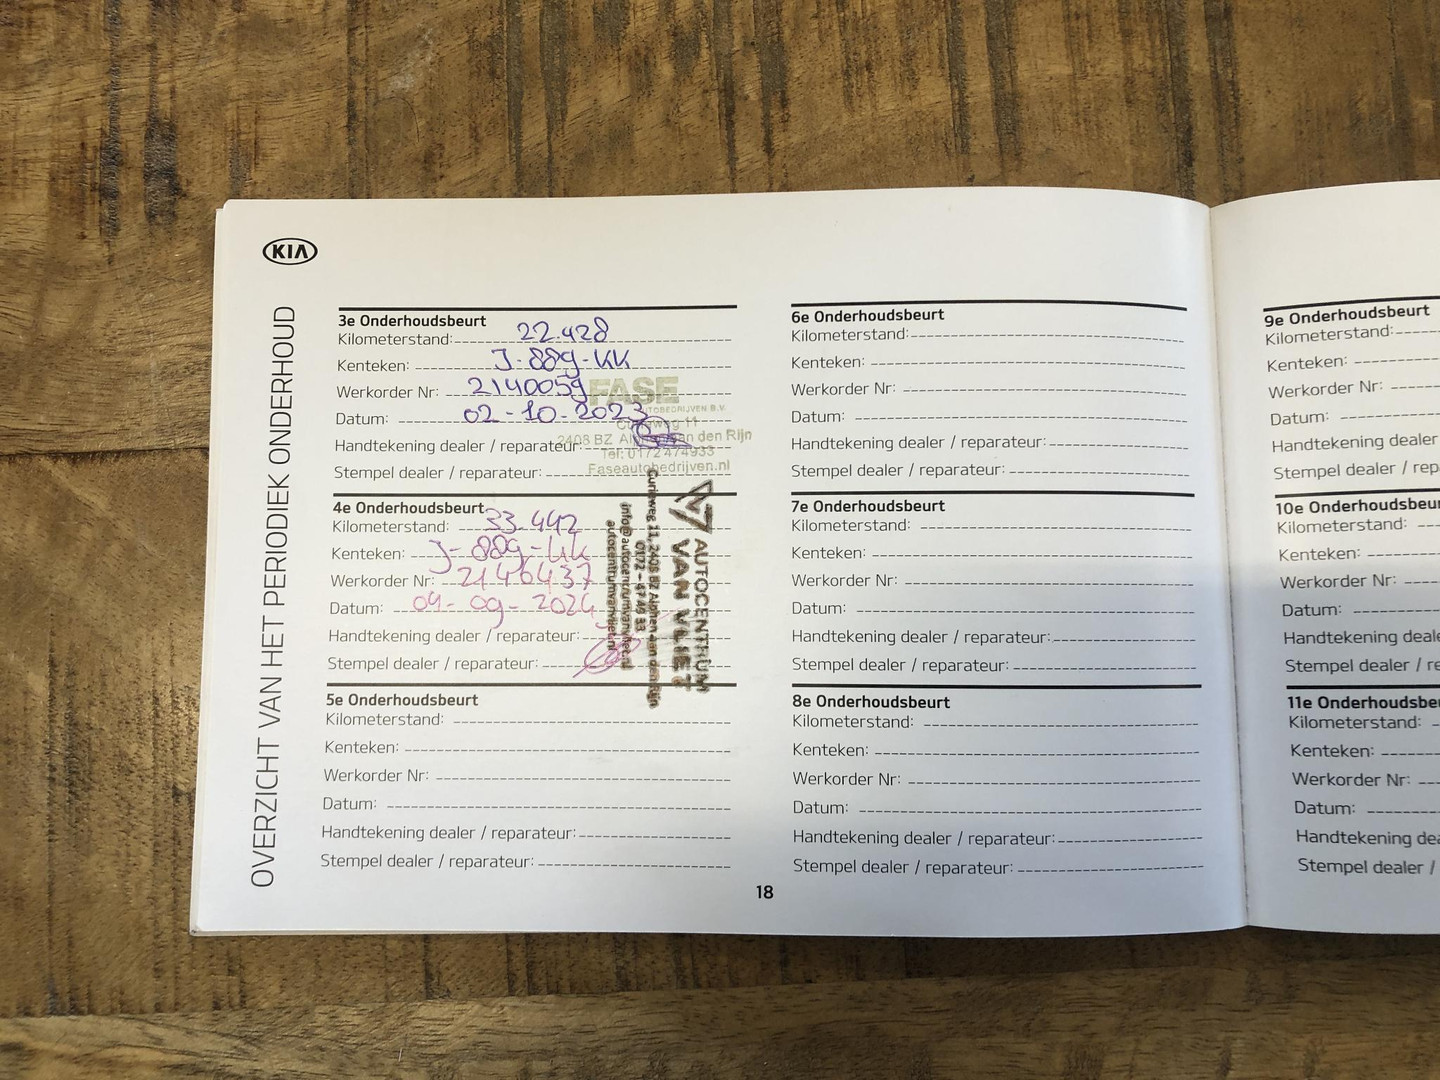 KIA
OVERZICHT VAN HET PERIODIEK ONDERHOUD
3e Onderhoudsbeurt
Kilometerstand: 22.428
Kenteken: J-889-KK
Werkorder Nr: 2140059
Datum: 02-10-2023
Handtekening dealer / reparateur:
Stempel dealer / reparateur:
FASE
AUTOBEDRIJVEN B.V.
Curieweg 11
2408 BZ Alphen aan den Rijn
Tel: 0172 474933
Faseautobedrijven.nl
4e Onderhoudsbeurt
Kilometerstand: 33.442
Kenteken: J-889-KK
Werkorder Nr: 2146437
Datum: 04-09-2024
Handtekening dealer / reparateur:
Stempel dealer / reparateur:
AUTOCENTRUM
VAN VLIET
Curieweg 11, 2408 BZ Alphen aan den Rijn
0172 - 47 49 33
info@autocentrumvanvliet.nl
autocentrumvanvliet.nl
5e Onderhoudsbeurt
Kilometerstand:
Kenteken:
Werkorder Nr:
Datum:
Handtekening dealer / reparateur:
Stempel dealer / reparateur:
6e Onderhoudsbeurt
Kilometerstand:
Kenteken:
Werkorder Nr:
Datum:
Handtekening dealer / reparateur:
Stempel dealer / reparateur:
7e Onderhoudsbeurt
Kilometerstand:
Kenteken:
Werkorder Nr:
Datum:
Handtekening dealer / reparateur:
Stempel dealer / reparateur:
8e Onderhoudsbeurt
Kilometerstand:
Kenteken:
Werkorder Nr:
Datum:
Handtekening dealer / reparateur:
Stempel dealer / reparateur:
18
9e Onderhoudsbeurt
Kilometerstand:
Kenteken:
Werkorder Nr:
Datum:
Handtekening dealer
Stempel dealer / rep
10e Onderhoudsbeur
Kilometerstand:
Kenteken:
Werkorder Nr:
Datum:
Handtekening deale
Stempel dealer / re
11e Onderhoudsbeu
Kilometerstand:
Kenteken:
Werkorder Nr:
Datum:
Handtekening dea
Stempel dealer /